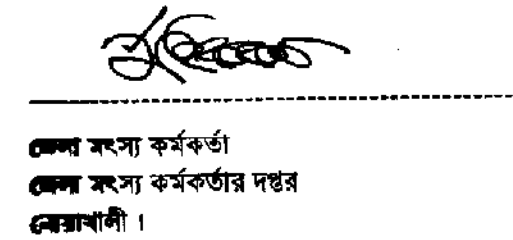 জেলা মৎস্য কর্মকর্তা
জেলা মৎস্য কর্মকর্তার দপ্তর
নোয়াখালী ।